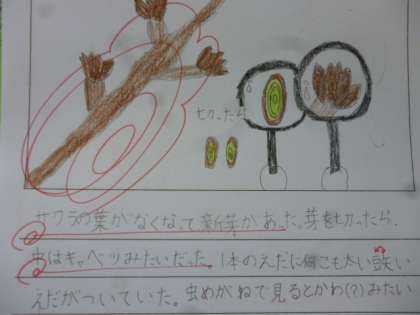 切ったら
サクラの葉がなくなって新芽があった。芽を切ったら、
虫はキャベツみたいだった。1本のえだに何こも太い
えだがついていた。虫めがねで見るとかわ(?)みたい